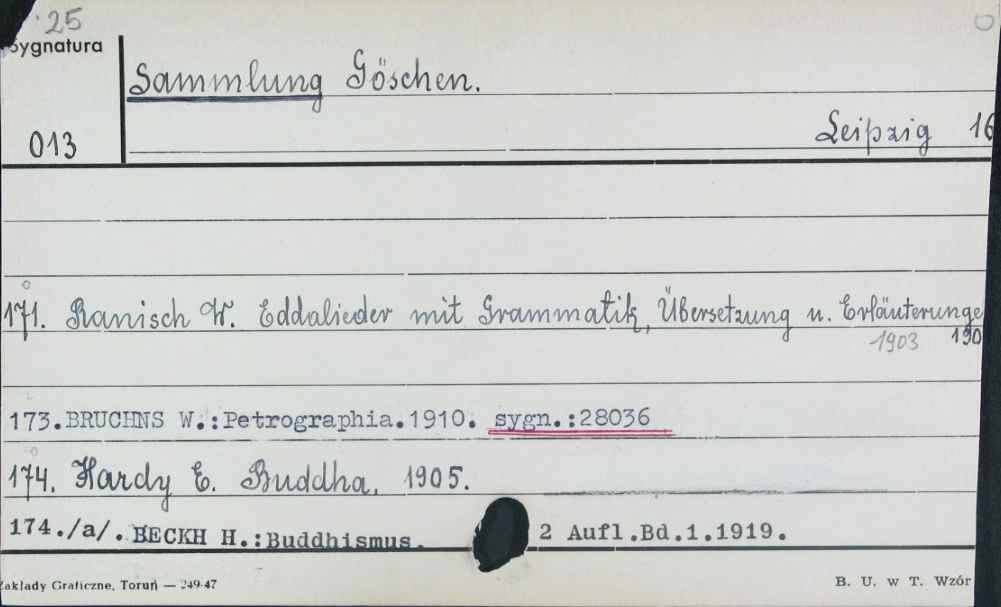 25
Sygnatura
Sammlung Göschen.
013
Leipzig 16
171. Ranisch W. Eddalieder mit Grammatik, Übersetzung u. Erläuterunge
1903 190
173.BRUCHNS W.:Petrographia.1910. sygn.:28036
174. Hardy E. Buddha. 1905.
174./a/. BECKH H.:Buddhismus. 2 Aufl.Bd.1.1919.
Zakłady Graficzne, Toruń — 249-47 B. U. w T. Wzór